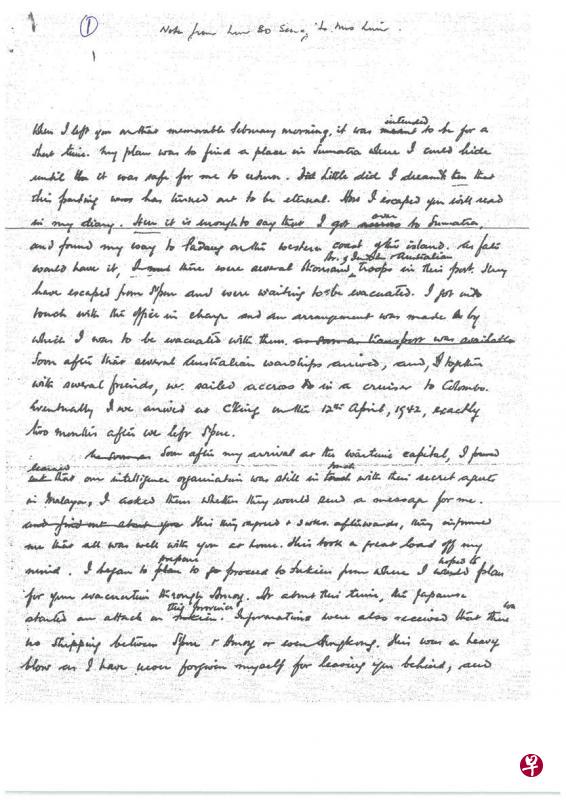 ①
Note from Lim Bo Seng to Mrs Lim.
When I left you on that memorable February morning, it was meant intended to be for a
short time. My plan was to find a place in Sumatra where I could hide
until the it was safe for me to return. Did Little did I dream then that
this parting was has turned out to be eternal. How I escaped you will read
in my diary. it is enough to say that I got across over to Sumatra
and found my way to Padang on the western coast of this island. As fate
would have it, I must there were several thousand Br. & Australian troops in this port. They
have escaped from S'pore and were waiting to be evacuated. I got into
touch with the office in charge and an arrangement was made by
which I was to be evacuated with them. as soon as transport was available
Soon after that several Australian warships arrived, and, I together
with several friends, we sailed accross in a cruiser to Colombo.
Eventually I we arrived at C'king on the 12th April, 1942, exactly
two months after we left S'pore.
Soon after my arrival at the wartime capital, I found
learned that our intelligence organisation was still in touch touch with their secret agents
in Malaya, I asked them whether they would send a message for me.
and find out about you This they agreed & 3 wks. afterwards, they informed
me that all was well with you at home. This took a great load off my
mind. I began to plan prepare to go proceed to Fukien from where I would hoped to plan
for your evacuation through Amoy. At about this time, the Japanese
started an attack on Fukien this province. Informations were also received that there was
no shipping between S'pore & Amoy or even Hongkong. This was a heavy
blow as I have never forgiven myself for leaving you behind, and